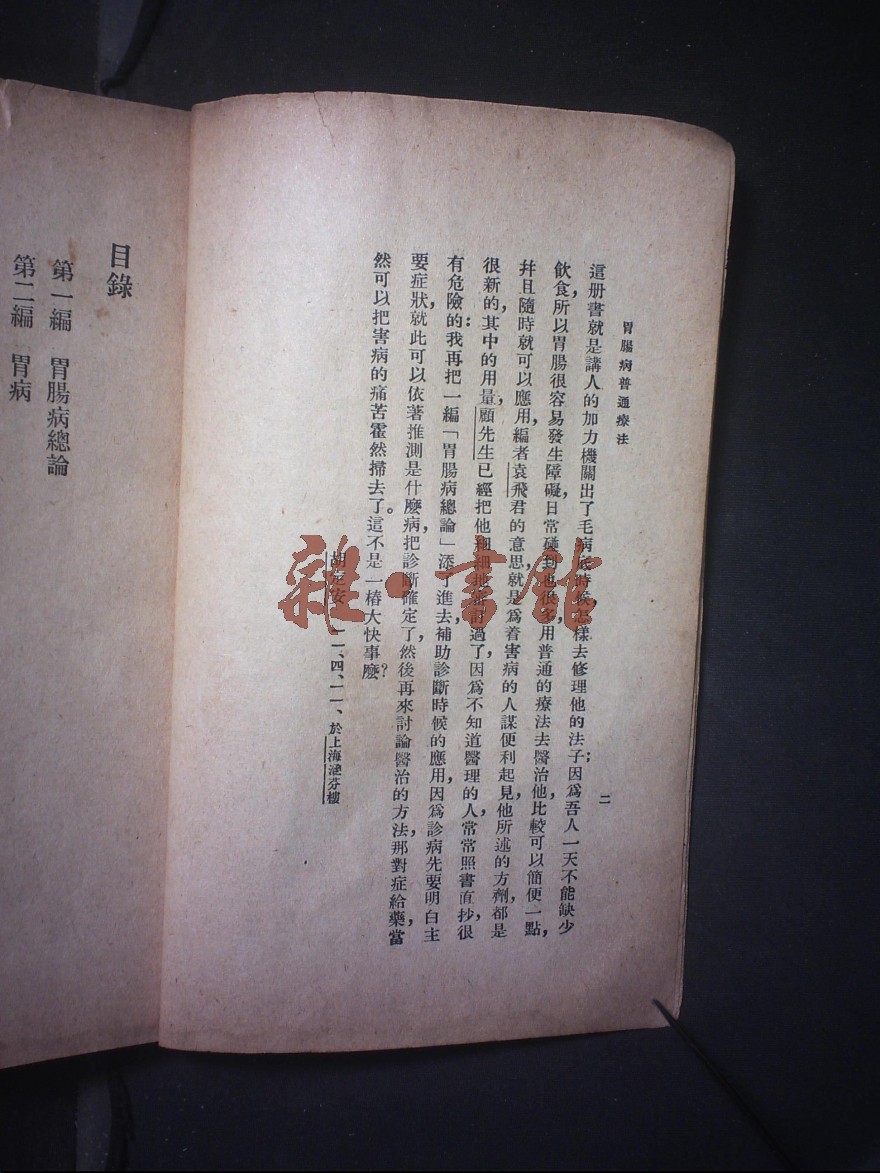 胃腸病普通療法
二
這册書就是講人的加力機關出了毛病底時候，怎樣去修理他的法子；因爲吾人一天不能缺少
飲食，所以胃腸很容易發生障礙，日常碰到也很多，用普通的療法去醫治他，比較可以簡便一點，
幷且隨時就可以應用，編者袁飛君的意思就是爲着害病的人謀便利起見，他所述的方劑，都是
很新的，其中的用量，顧先生已經把他細細地審訂過了，因爲不知道醫理的人，常常照書直抄，很
有危險的：我再把一編「胃腸病總論」添了進去，補助診斷時候的應用，因爲診病先要明白主
要症狀，就此可以依著推測是什麼病，把診斷確定了，然後再來討論醫治的方法，那對症給藥，當
然可以把害病的痛苦霍然掃去了。這不是一樁大快事麼？
胡定安 一二、四、二一、於上海涵芬樓
目錄
第一編 胃腸病總論
第二編 胃病
雜·書館